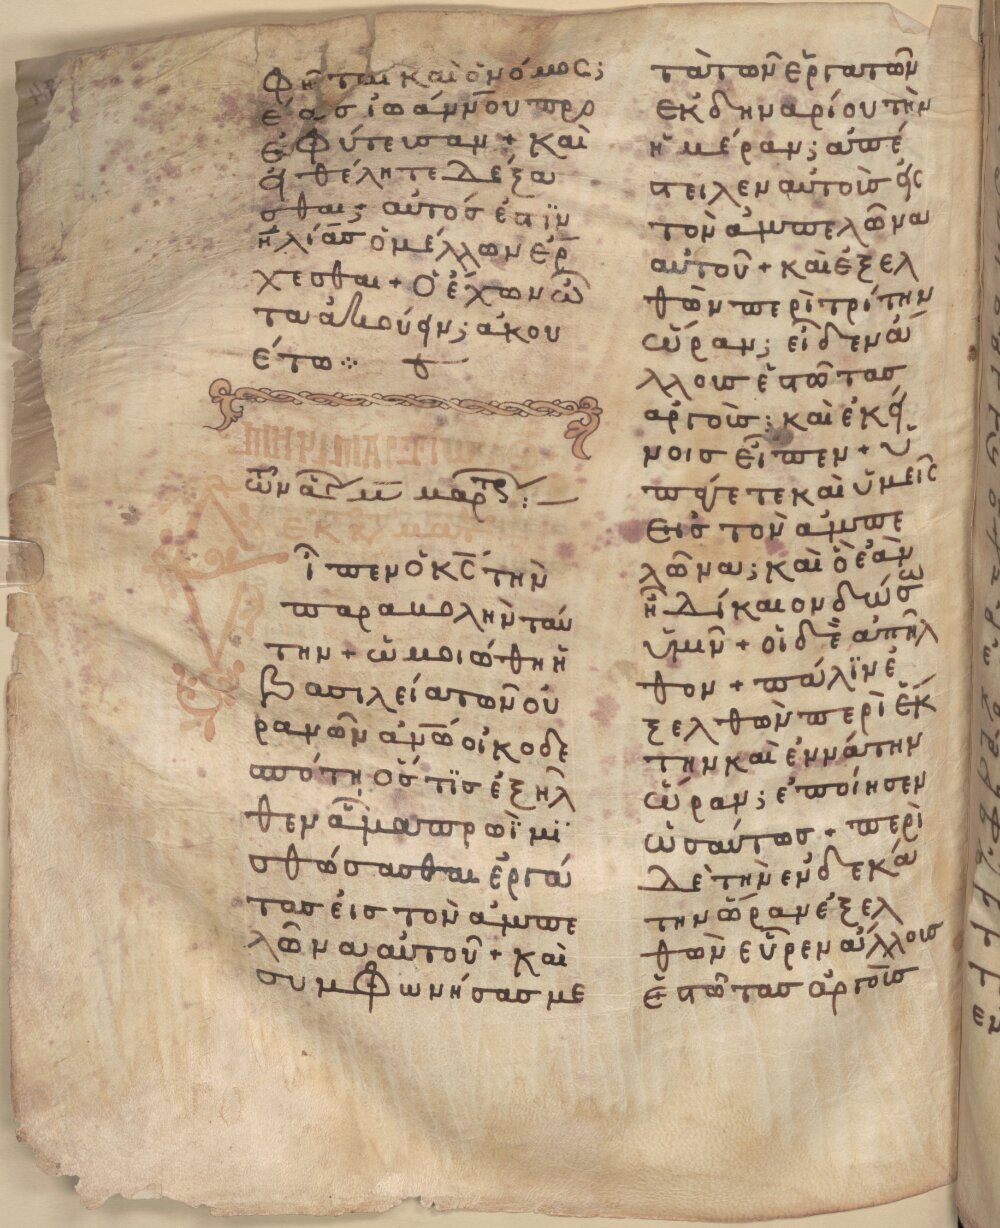 φῆται καὶ ὁ νόμος;
ἕως ἰωάννου προ
εφύτευσαν + καὶ
εἰ θέλητε δέξα
σθαι; αὐτός ἐστϊν
ἠλίας ὁ μέλλων ἔρ
χεσθαι + Ὁ ἔχων ὦ
τα ἀκούειν; ἀκου
έτω ⁘ +
τῶν ἁγ μ̅ μαρτ :
ἶπεν ὁ κ̅ς̅ τὴν
παραβολὴν ταύ
την + ὡμοιώθη ἡ
βασιλεία τῶν οὐ
ρανῶν ἀν̅ω̅ οἰκοδε
σπότη; ὅστϊς ἐξῆλ
θεν ἅμα πρωῒ μϊ
σθώσασθαι ἐργά
τας εἰς τὸν ἀμπε
λῶνα αὐτοῦ + καὶ
συμφωνήσας με
τὰ τῶν ἐργατῶν
ἐκ δηναρίου τὴν
ἡμέραν; ἀπέ
στειλεν αὐτοὺς εἰς
τὸν ἀμπελῶνα
αὐτοῦ + καὶ ἐξελ
θὼν περὶ τρίτην
ὥραν; εἶδεν ἄ
λλους ἑστῶτας
ἀργοὺς; καὶ ἐκεί
νοις εἶπεν + ὑ
πάγετε καὶ ὑμεῖς
εἰς τὸν ἀμπε
λῶνα; καὶ ὃ ἐὰν
ἦ δίκαιον δώσω
ὑμῖν + οἱ δὲ ἀπῆλ
θον + πάλϊν ἐ
ξελθὼν περὶ ἕκ
την καὶ ἐννάτην
ὥραν; ἐποίησεν
ὡσαύτως + περὶ
δὲ τὴν ἑνδεκά
την ὥραν ἐξελ
θὼν εὗρεν ἄλλους
ἑστῶτας ἀργοὺς